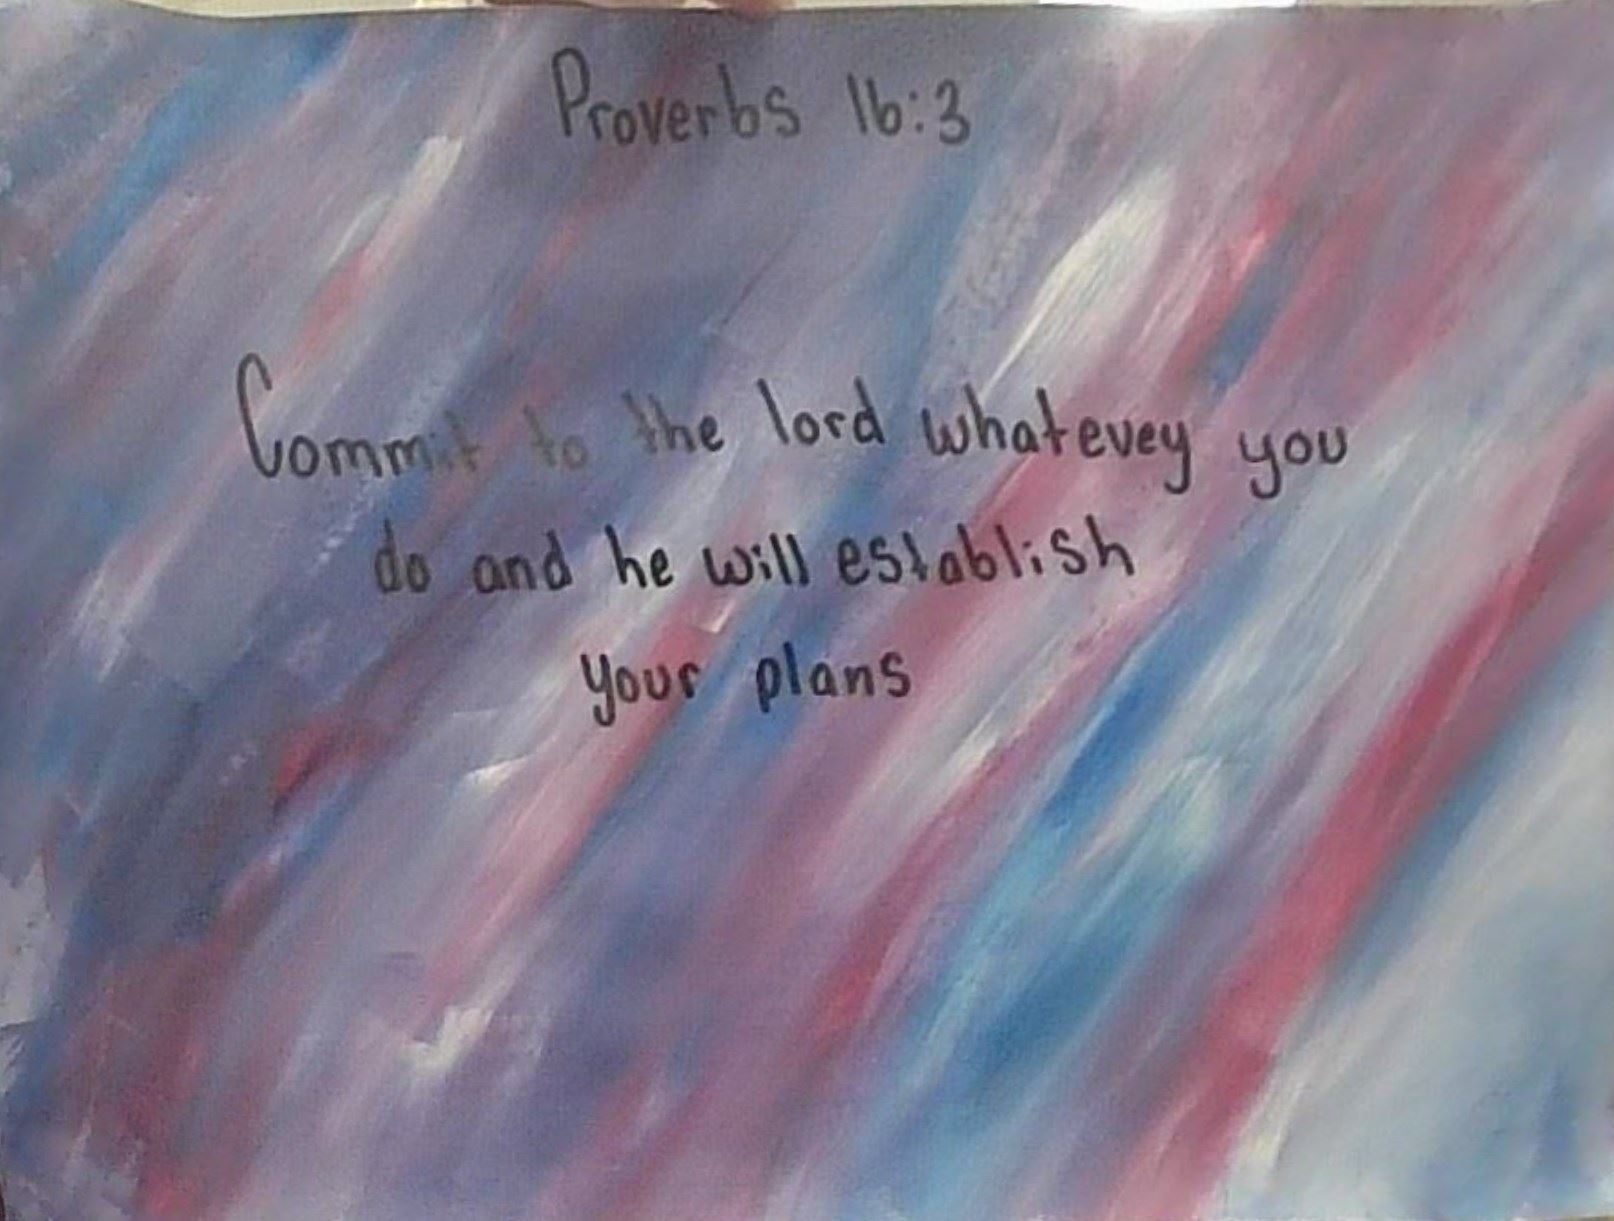 Proverbs 16:3
Commit to the lord whatevey you
do and he will establish
your plans